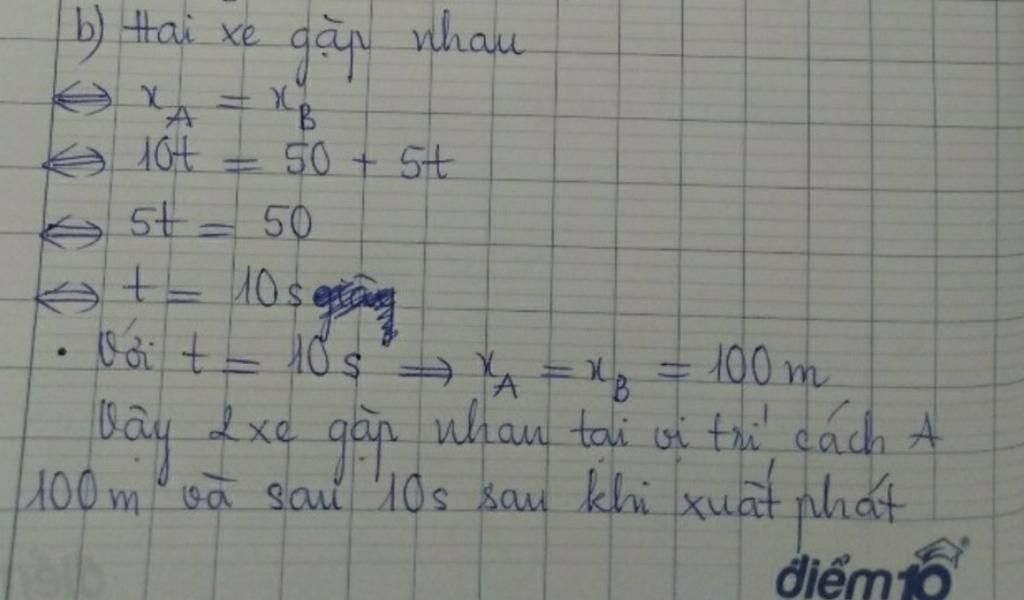 b) Hai xe gặp nhau
⇔ x_A = x_B
⇔ 10t = 50 + 5t
⇔ 5t = 50
⇔ t = 10s
• Với t = 10s ⟹ x_A = x_B = 100m
Vậy 2 xe gặp nhau tại vị trí cách A
100m và sau 10s sau khi xuất phát
điểm10